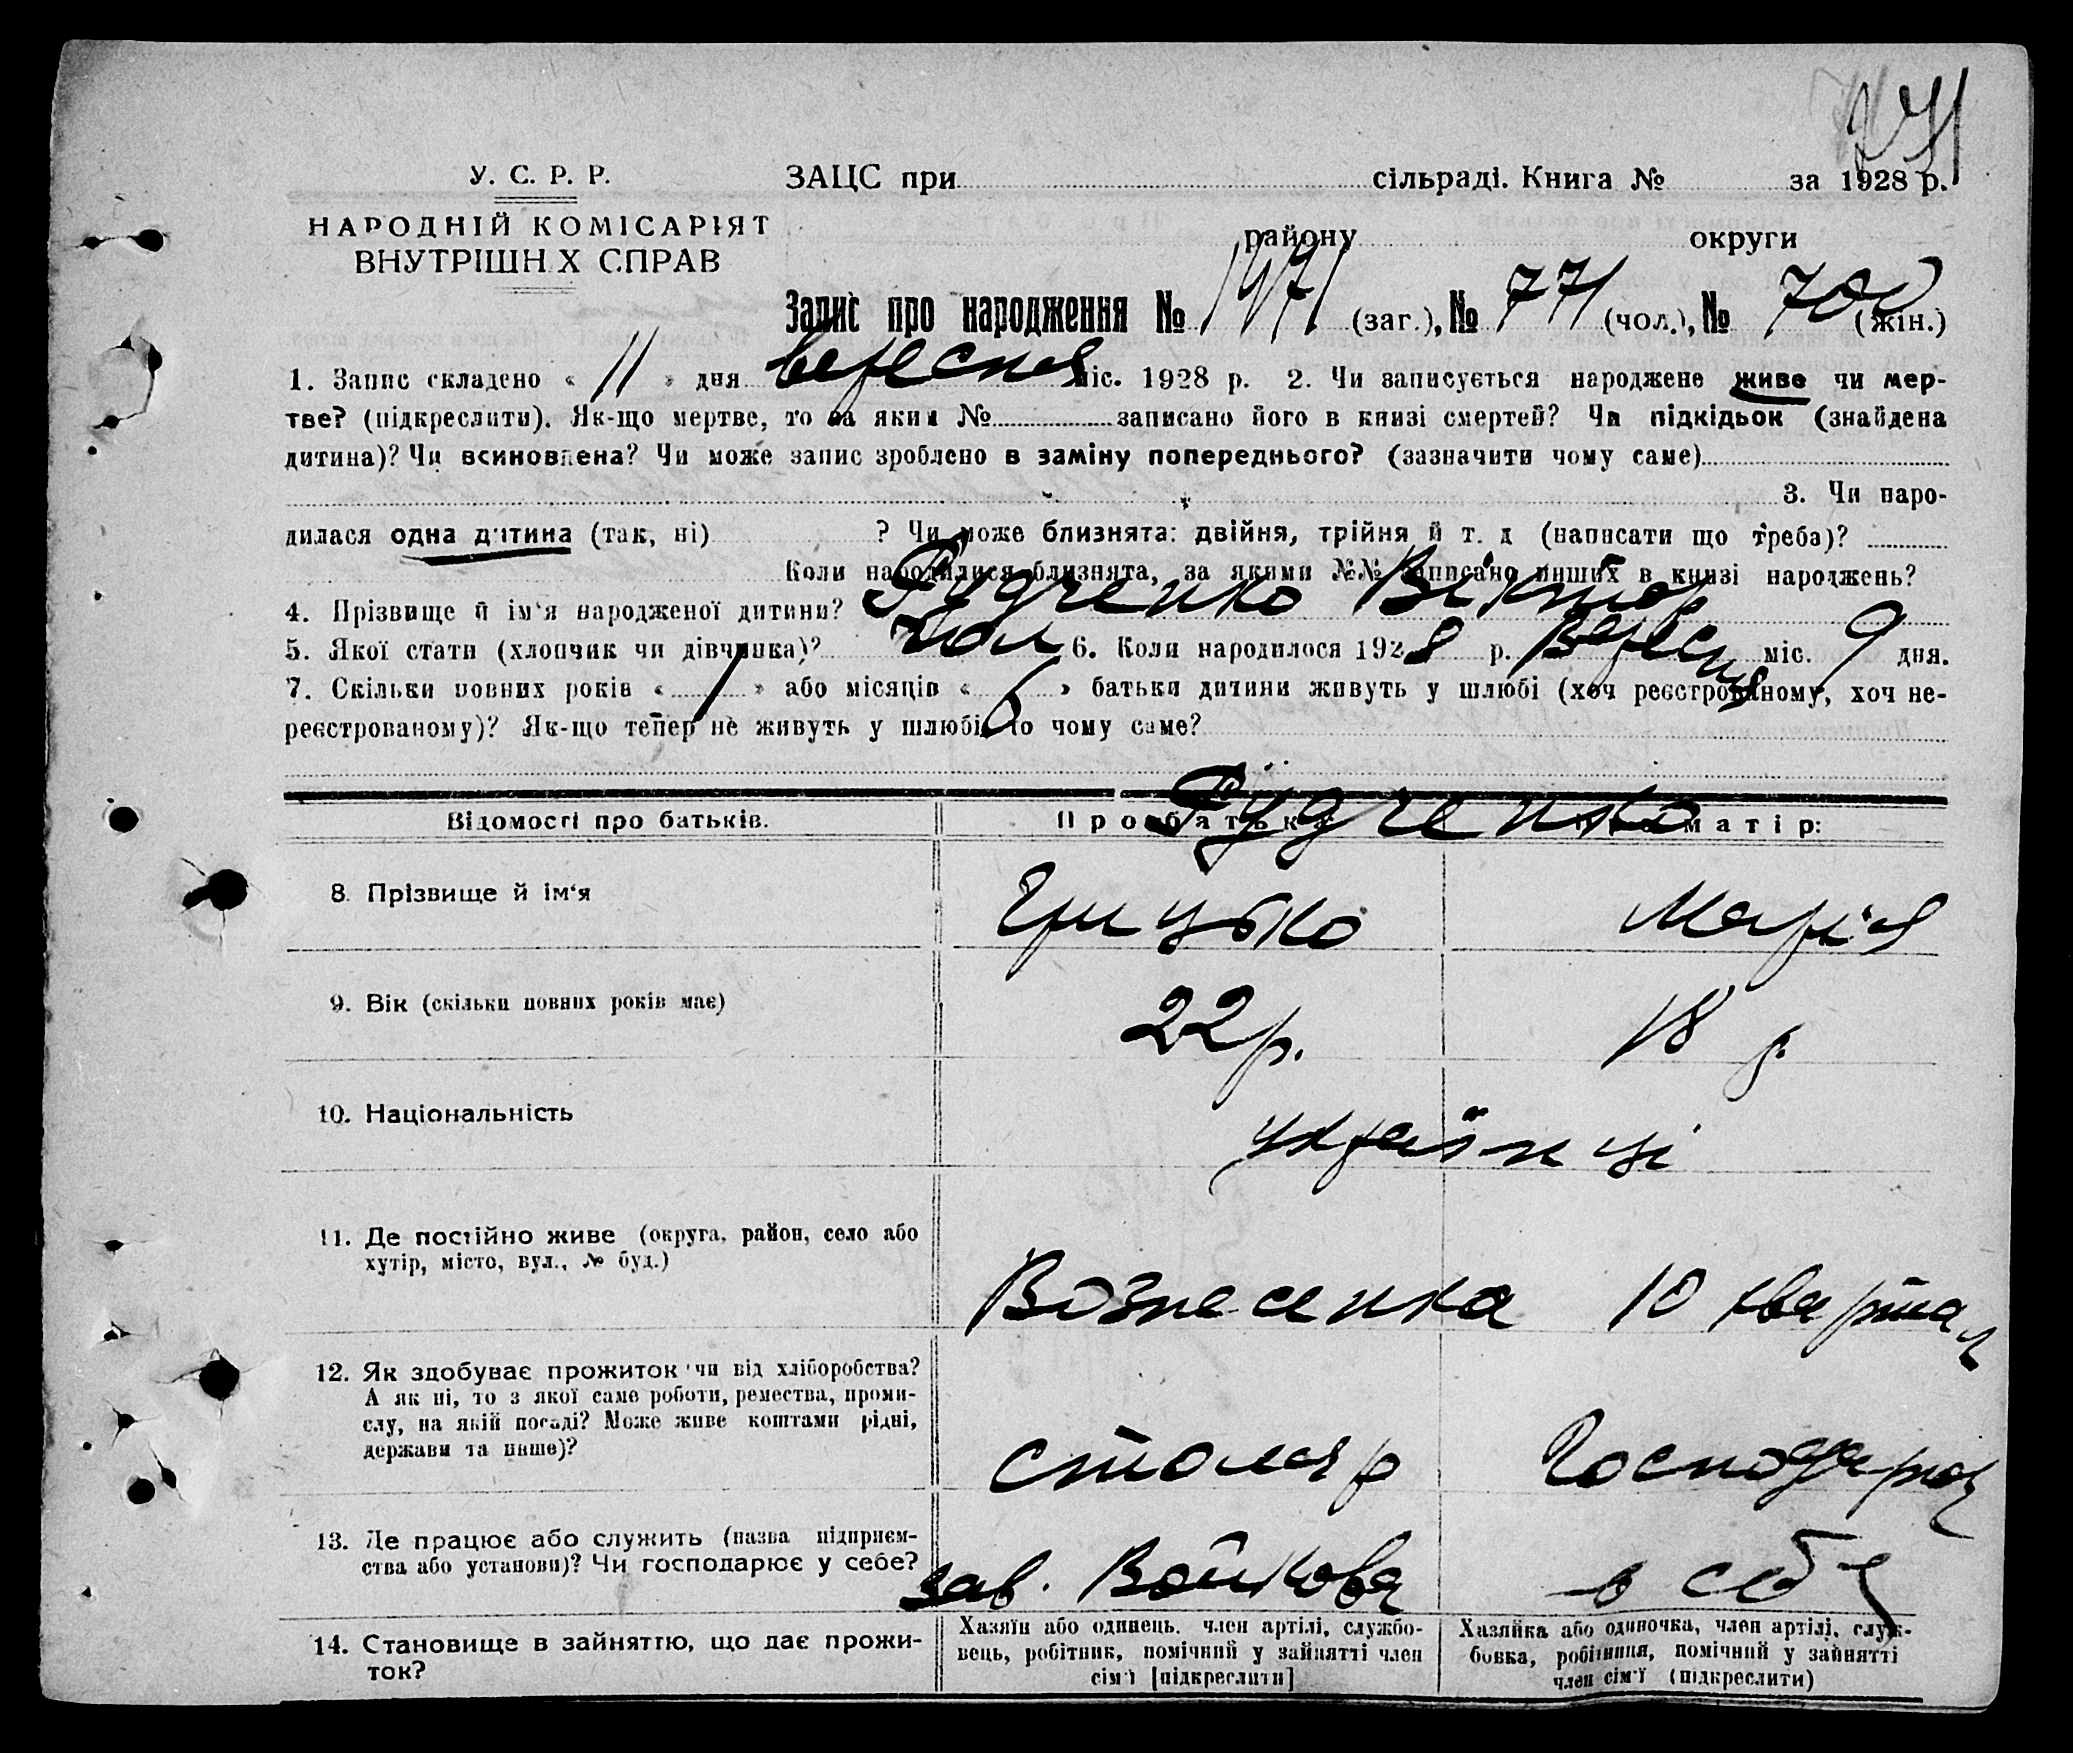 У. С. Р. Р.
НАРОДНІЙ КОМІСАРІЯТ
ВНУТРІШНІХ СПРАВ
ЗАЦС при сільраді. Книга № за 1928 р.
району округи
Запис про народження № 1471 (заг.), № 771 (чол.), № 700 (жін.)
1. Запис складено « 11 » дня вересня міс. 1928 р. 2. Чи записується народжене живе чи мер-
тве? (підкреслити). Як-що мертве, то за яким № записано його в книзі смертей? Чи підкідьок (знайдена
дитина)? Чи всиновлена? Чи може запис зроблено в заміну попереднього? (зазначити чому саме)
3. Чи наро-
дилася одна дитина (так, ні) ? Чи може близнята: двійня, трійня й т. д (написати що треба)?
Коли народилися близнята, за якими №№ записано инших в книзі народжень?
4. Прізвище й ім'я народженої дитини? Рудченко Віктор
5. Якої стати (хлопчик чи дівчинка)? чол 6. Коли народилося 1928 р. Вересня міс. 9 дня.
7. Скільки повних років « 1 » або місяців « 6 » батьки дитини живуть у шлюбі (хоч реєстрованому, хоч не-
реєстрованому)? Як-що тепер не живуть у шлюбі, то чому саме?
Відомості про батьків. Про батька: Про матір:
Рудченко
8. Прізвище й ім'я Грицько Марія
9. Вік (скільки повних років має) 22 р. 18 р.
10. Національність українці
11. Де постійно живе (округа, район, село або
хутір, місто, вул., № буд.)
Вознесенка 10 квартал
12. Як здобуває прожиток чи від хліборобства?
А як ні, то з якої саме роботи, ремества, проми-
слу, на якій посаді? Може живе коштами рідні,
держави та инше)?
столяр Господарює
13. Де працює або служить (назва підприєм-
ства або установи)? Чи господарює у себе?
зав. Войкова в себе
14. Становище в зайняттю, що дає прожи-
ток?
Хазяїн або одинець, член артілі, службо-
вець, робітник, помічний у зайнятті член
сім'ї [підкреслити]
Хазяйка або одиночка, член артілі, служ-
бовка, робітниця, помічний у зайнятті
член сім'ї (підкреслити)